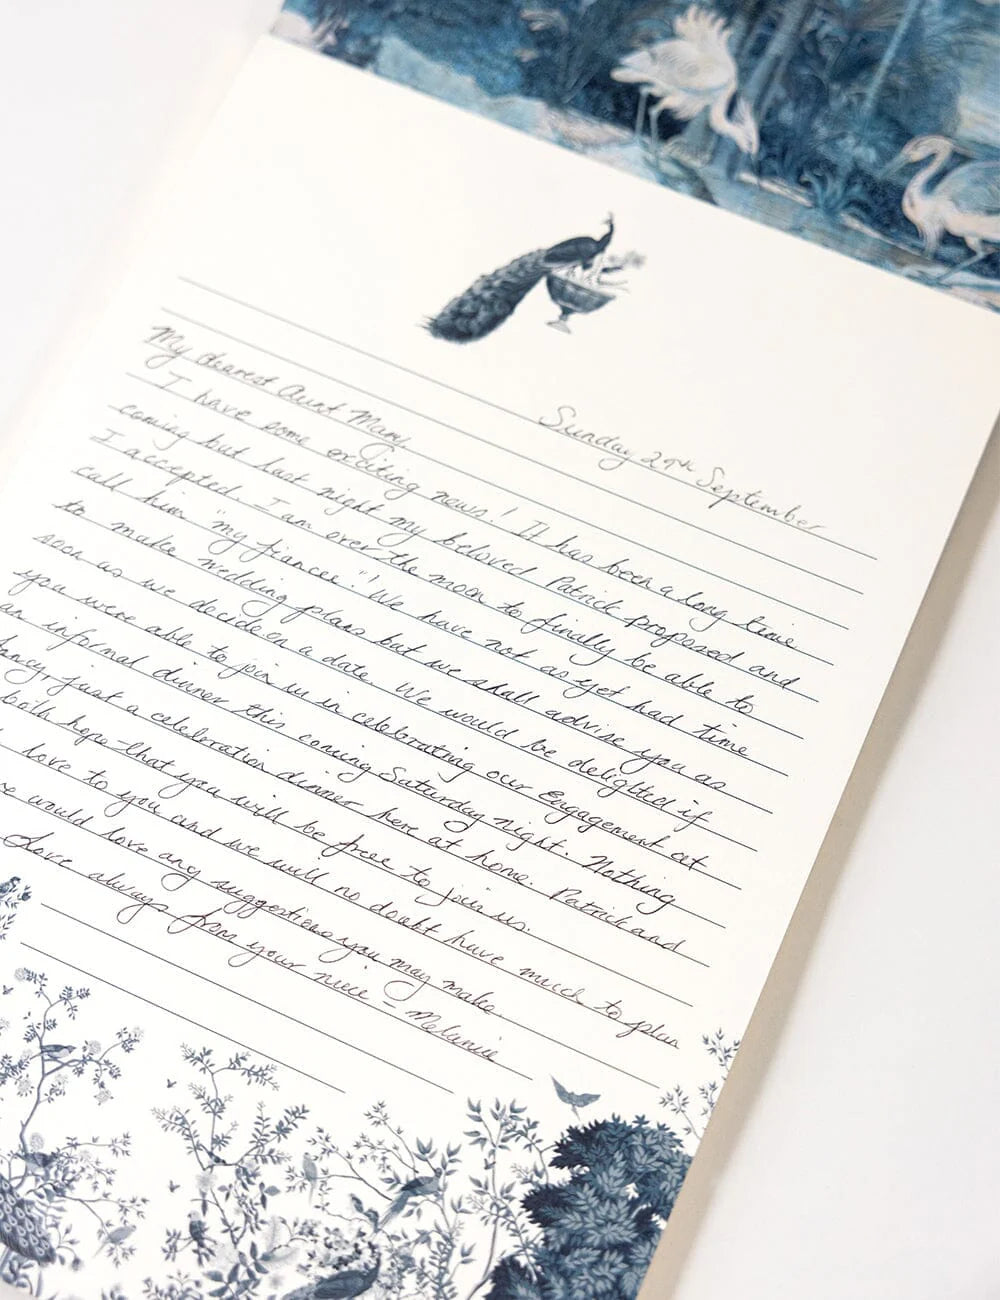 Sunday 29th September
My dearest Aunt Mary,
I have some exciting news! It has been a long time
coming but last night my beloved Patrick proposed and
I accepted. I am over the moon to finally be able to
call him "my fiancee." We have not as yet had time
to make wedding plans but we shall advise you as
soon as we decide on a date. We would be delighted if
you were able to join us in celebrating our engagement at
an informal dinner this coming Saturday night. Nothing
fancy, just a celebration dinner here at home. Patrick and
both hope that you will be free to join us.
love to you and we will no doubt have much to plan
we would love any suggestions you may make.
Love always from your niece – Melanie